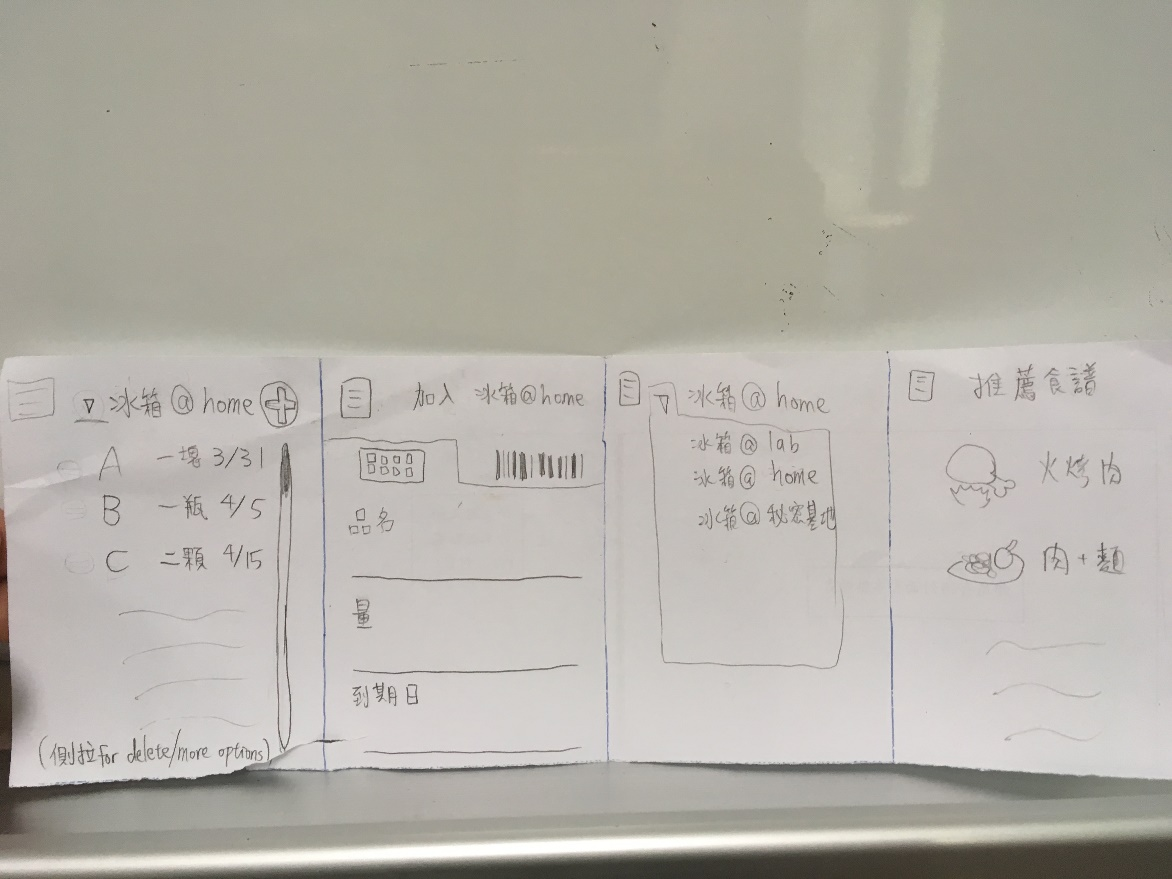 冰箱@home
A 一塊 3/31
B 一瓶 4/5
C 二顆 4/15
(側拉for delete/more options)
加入 冰箱@home
品名
量
到期日
冰箱@home
冰箱@lab
冰箱@home
冰箱@秘密基地
推薦食譜
火烤肉
肉+麵